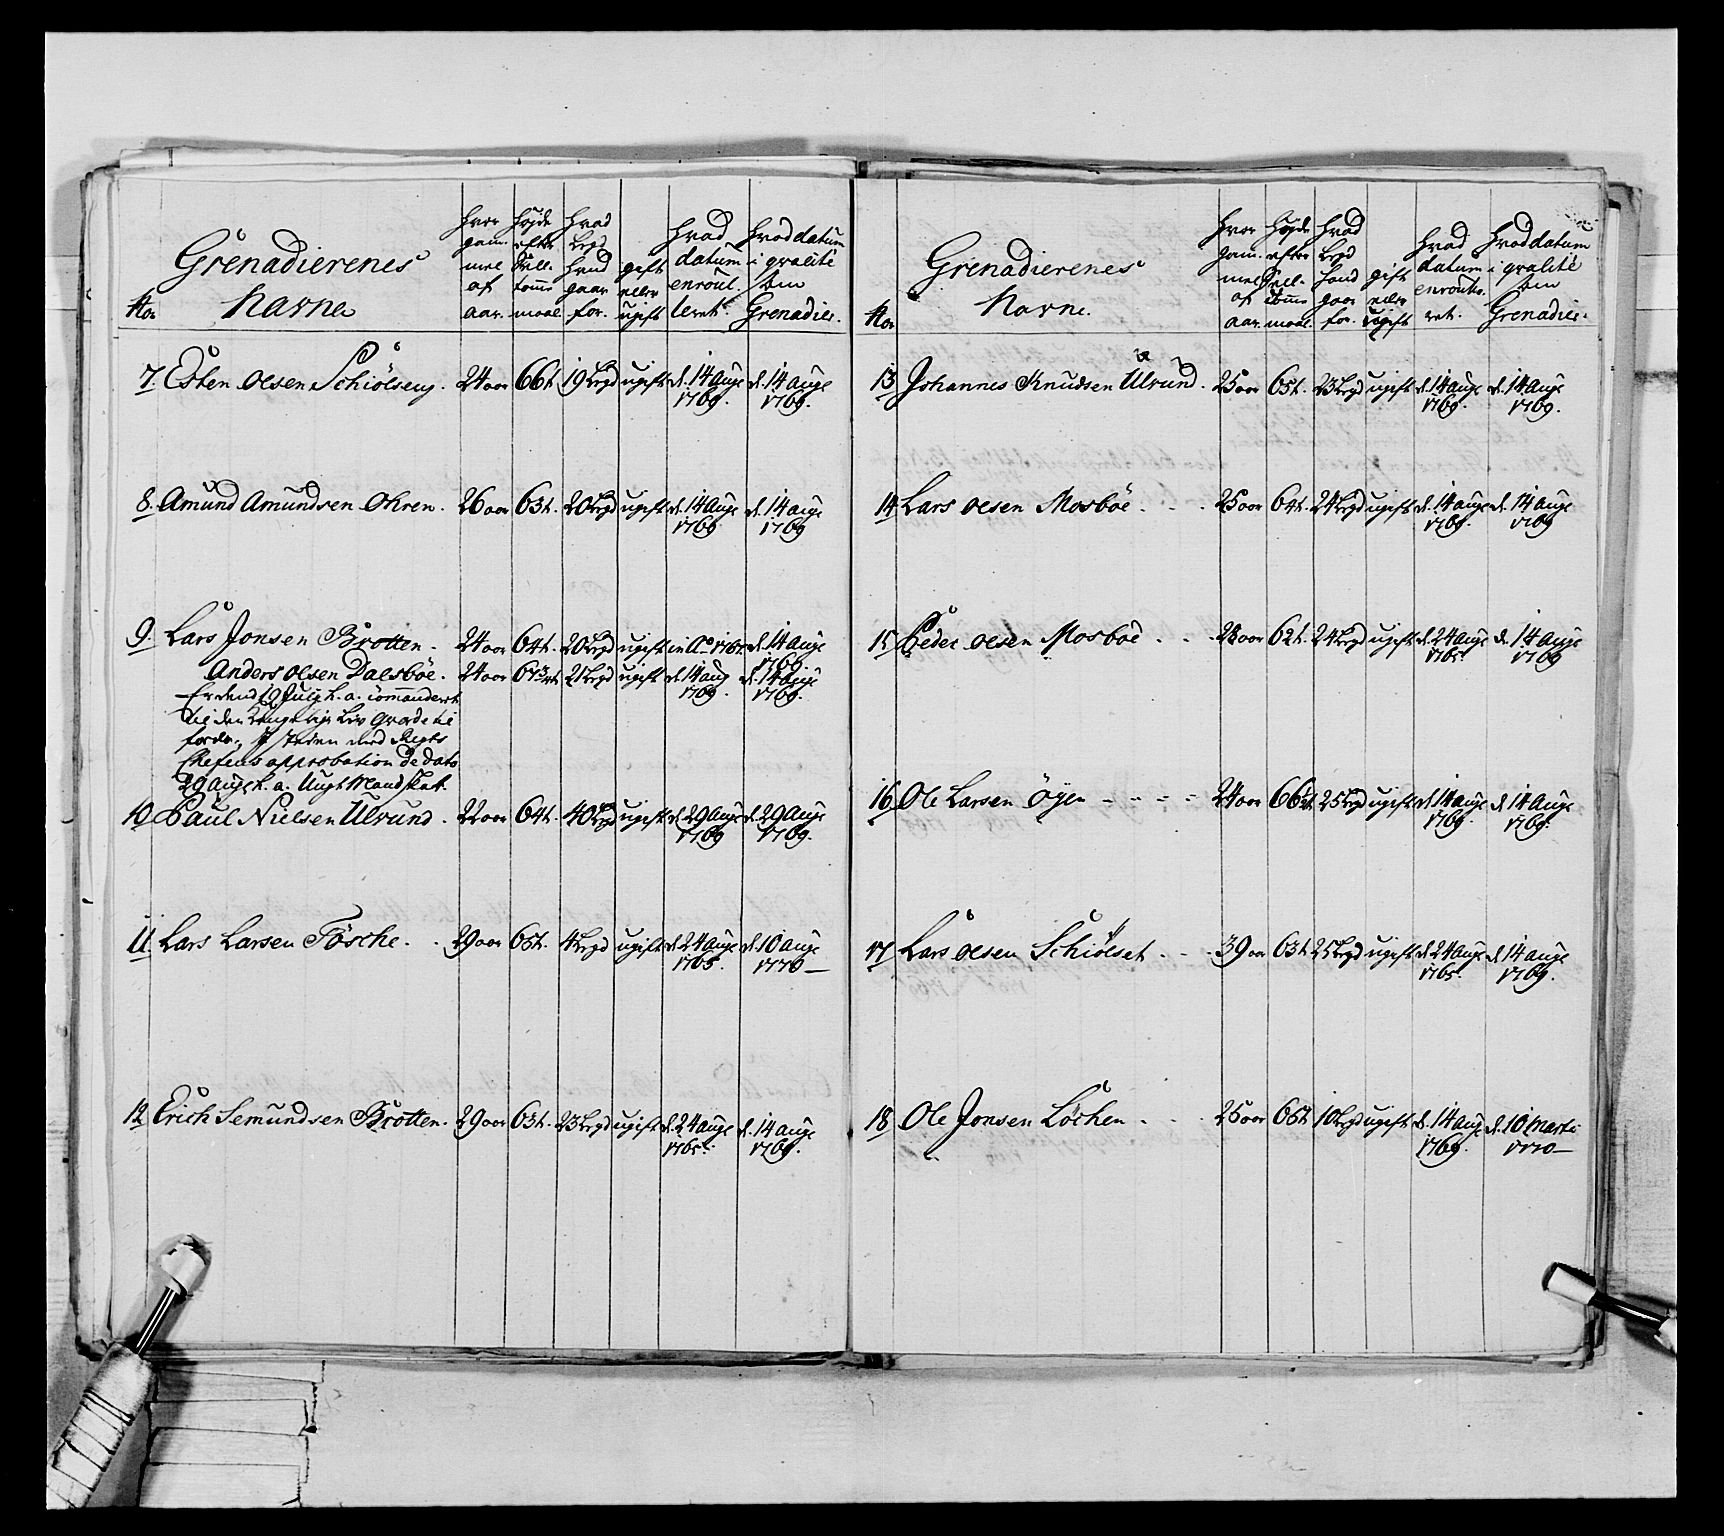 Grenadierenes Navne
No
hvor gammel af aar.
højde efter Sell. tomme maal.
hvad Legd hand gaar for.
gift eller ugift
hvad datum enroulleret.
hvad datum i qvalité som Grenadier.
7. Esten Olsen Schiölseng. 24 aar 66t. 19 Legd ugift d. 14 Aug: 1769. d. 14 Aug: 1769.
8. Amund Amundsen Ohren. 26 aar 63t. 20 Legd ugift d. 14 Aug: 1769 d. 14 Aug: 1769
9. Lars Jonsen Brotten. 24 aar 64t. 20 Legd ugift in Ao d. 14 Aug: 1769.
Anders Olsen Dalsböe. 24 aar 21 Legd ugift d. 14 Aug 1769. d. 14 Aug: 1769.
Er dend 19 July h. a. commanderet
til den Kongelige Liv Garde til
med Regts
Chefens approbation de dato
29 Aug: h. a.
10 Paul Nielsen Ulvund. 22 aar 64t. 40 Legd ugift d. 29 Aug: 1769 d. 29 Aug: 1769.
11. Lars Larsen Fösche. 29 aar 65t. 4 Legd ugift d. 24 Aug: 1765. d. 10 Aug: 1770
12 Erich Semundsen Brotten. 29 aar 63t. 23 Legd ugift d. 24 Aug: 1765. d. 14 Aug: 1769.
Grenadierenes Navne.
No
hvor gammel af aar.
højde efter Sell. tomme maal.
hvad Legd hand gaar for.
gift eller ugift
hvad datum enroulleret.
hvad datum i qvalité som Grenadier.
13 Johannes Knudsen Ulvund. 25 aar 65t. 23 Legd ugift d. 14 Aug: 1769. d. 14 Aug: 1769.
14 Lars Olsen Mosböe. 25 aar 64t. 24 Legd ugift d. 14 Aug: 1769. d. 14 Aug: 1769
15 Peder Olsen Mosböe. 28 aar 62t. 24 Legd ugift d. 24 Aug: 1765. d. 14 Aug: 1769
16 Ole Larsen Öyen 24 aar 25 Legd ugift d. 14 Aug: 1769. d. 14 Aug: 1769.
17 Lars Olsen Schiölset. 39 aar 63t. 25 Legd ugift d. 24 Aug: 1765. d. 14 Aug: 1769.
18 Ole Jonsen Löchen. 25 aar 65t. 10 Legd ugift d. 14 Aug: 1769. d. 10 Marti 1770